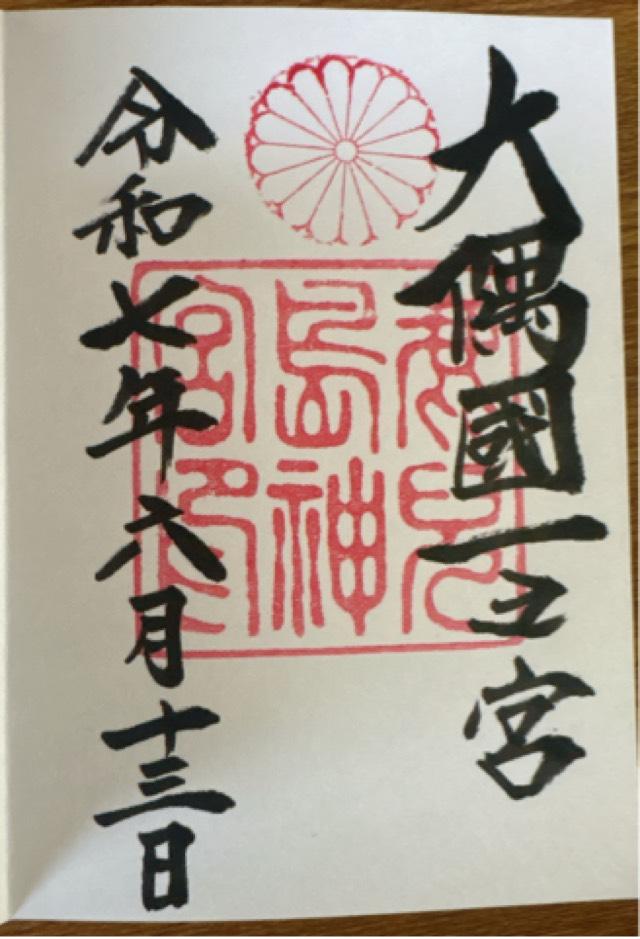 大隅國一之宮
鹿兒
島神
宮印
令和七年六月十三日